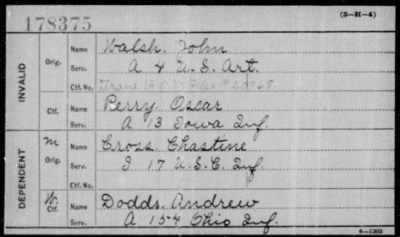 178375
(3-H-4)
INVALID
Orig. Name Walsh, John
Serv. A 4 U.S. Art.
Ctf. No. Trans to
Ctf. Name Perry Oscar
Serv. A 13 Iowa Inf.
DEPENDENT
M Orig. Name Cross, Chastine
Serv. I 17 U.S.C. Inf.
Ctf. No.
W. Ctf. Name Dodds, Andrew
Serv. A 154 Ohio Inf.